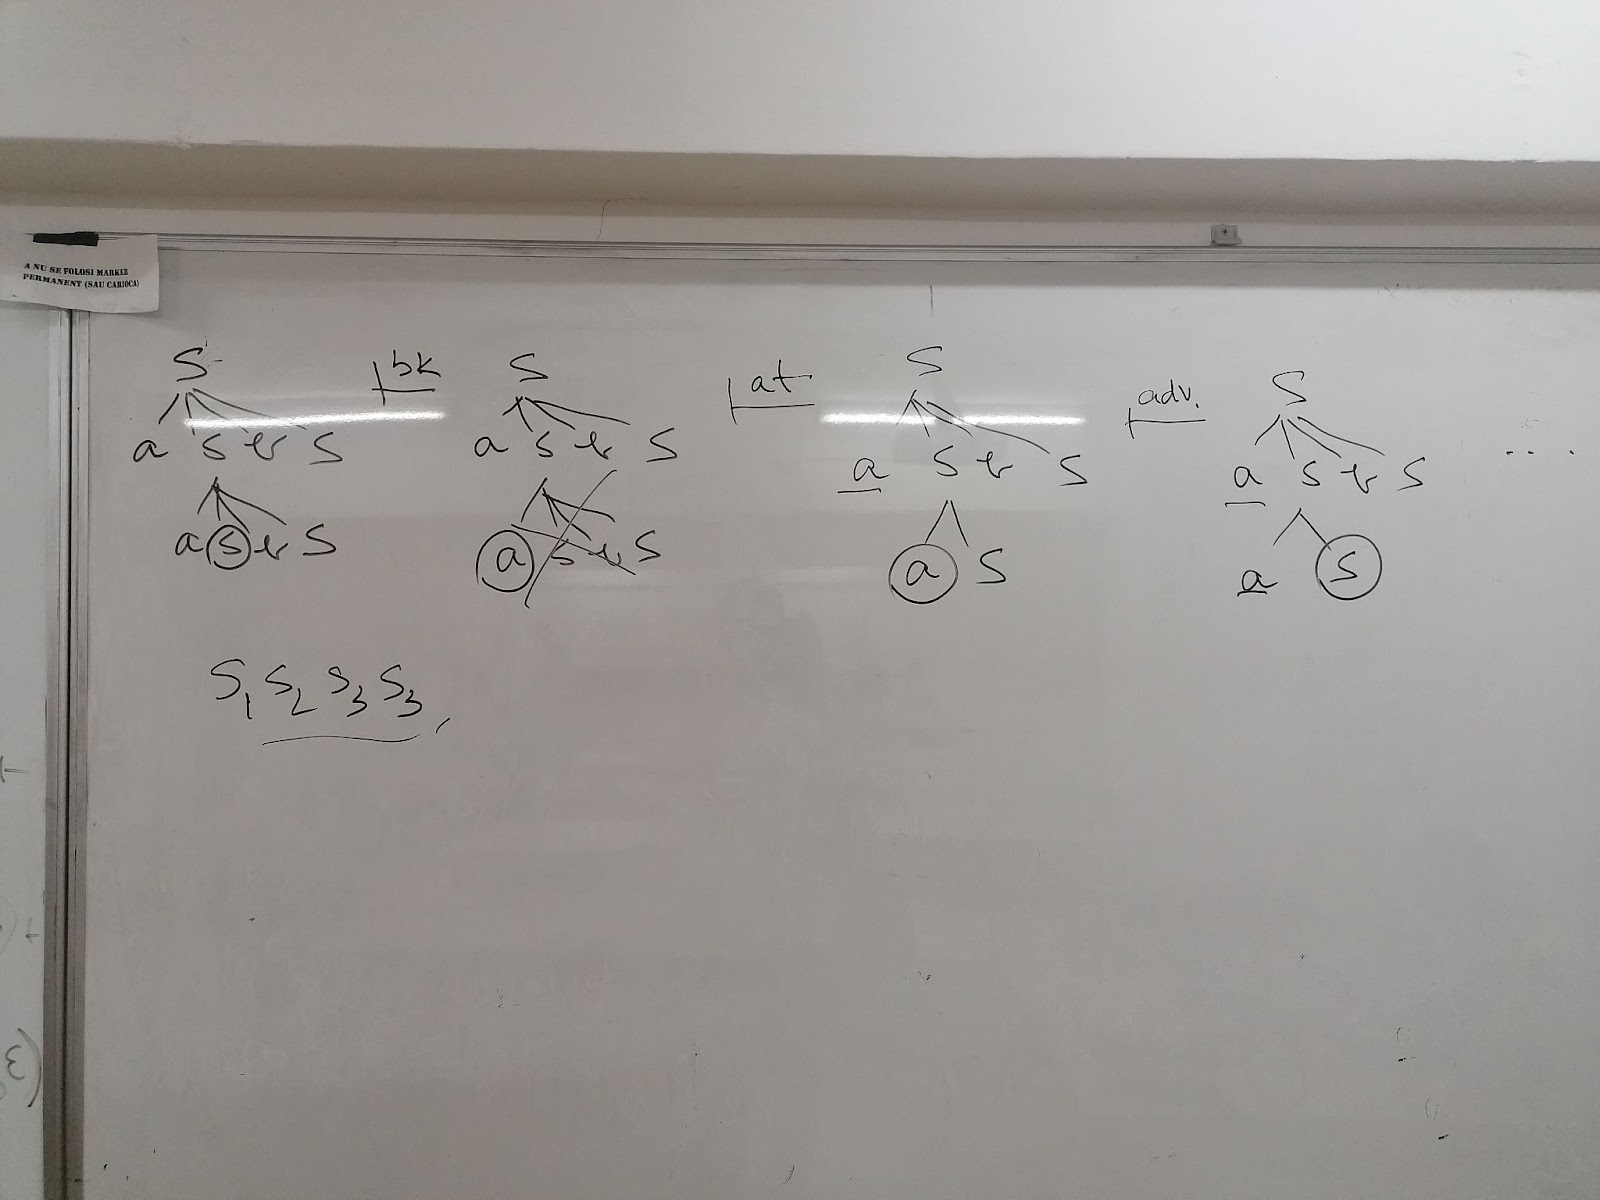 A NU SE FOLOSI MARKER
PERMANENT (SAU CARIOCA)
S |bk S |at S |adv. S
a S b S a S b S a S b S a S b S ....
a S b S a S b S a S a S
S1 S2 S3 S3,